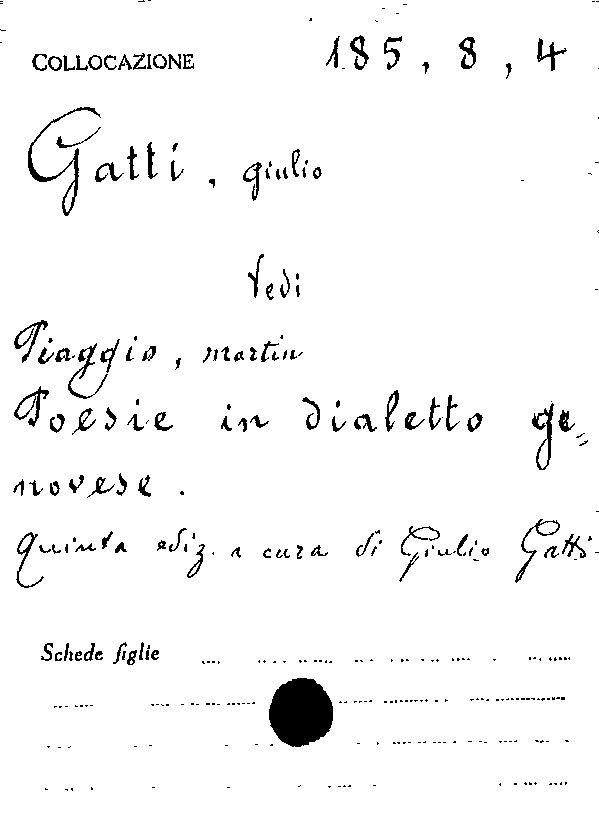 COLLOCAZIONE 185, 8, 4
Gatti, giulio
Vedi
Piaggio, martin
Poesie in dialetto ge=
novese.
Quinta ediz. a cura di Giulio Gatti
Schede figlie